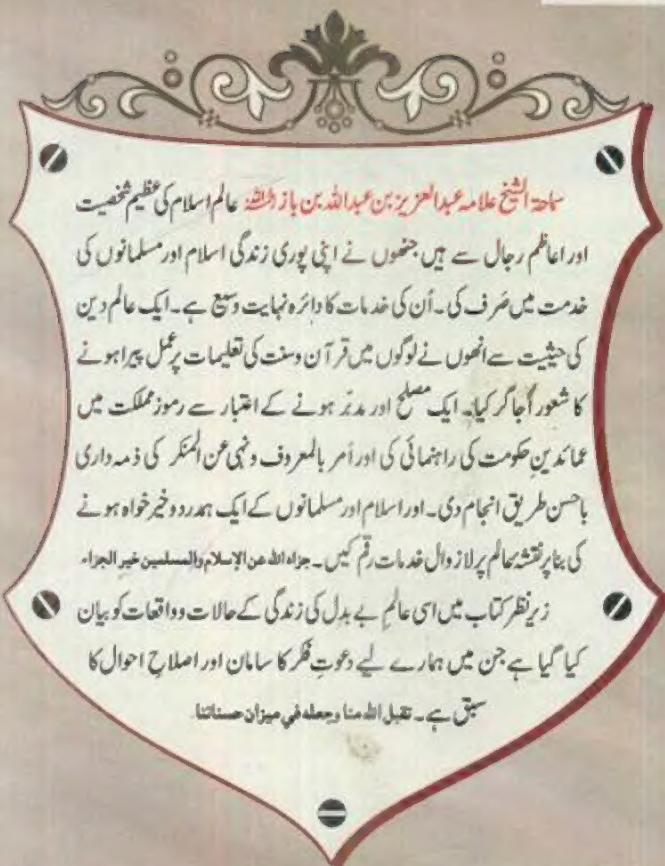 سماحۃ الشیخ علامہ عبدالعزیز بن عبداللہ بن باز رحمہ اللہ عالم اسلام کی عظیم شخصیت
اور اعاظم رجال سے ہیں جنھوں نے اپنی پوری زندگی اسلام اور مسلمانوں کی
خدمت میں صَرف کی۔ اُن کی خدمات کا دائرہ نہایت وسیع ہے۔ ایک عالم دین
کی حیثیت سے انھوں نے لوگوں میں قرآن وسنت کی تعلیمات پر عمل پیرا ہونے
کا شعور اُجاگر کیا۔ ایک مصلح اور مدبّر ہونے کے اعتبار سے رموز مملکت میں
عمائدینِ حکومت کی راہنمائی کی اور أمر بالمعروف ونہی عن المنکر کی ذمہ داری
باحسن طریق انجام دی۔ اور اسلام اور مسلمانوں کے ایک ہمدرد وخیر خواہ ہونے
کی بنا پر نقشۂ عالم پر لازوال خدمات رقم کیں۔ جزاه الله عن الإسلام والمسلمين خير الجزاء
زیر نظر کتاب میں اسی عالمِ بے بدل کی زندگی کے حالات و واقعات کو بیان
کیا گیا ہے جن میں ہمارے لیے دعوتِ فکر کا سامان اور اصلاحِ احوال کا
سبق ہے۔ تقبل الله منا وجعله في ميزان حسناتنا